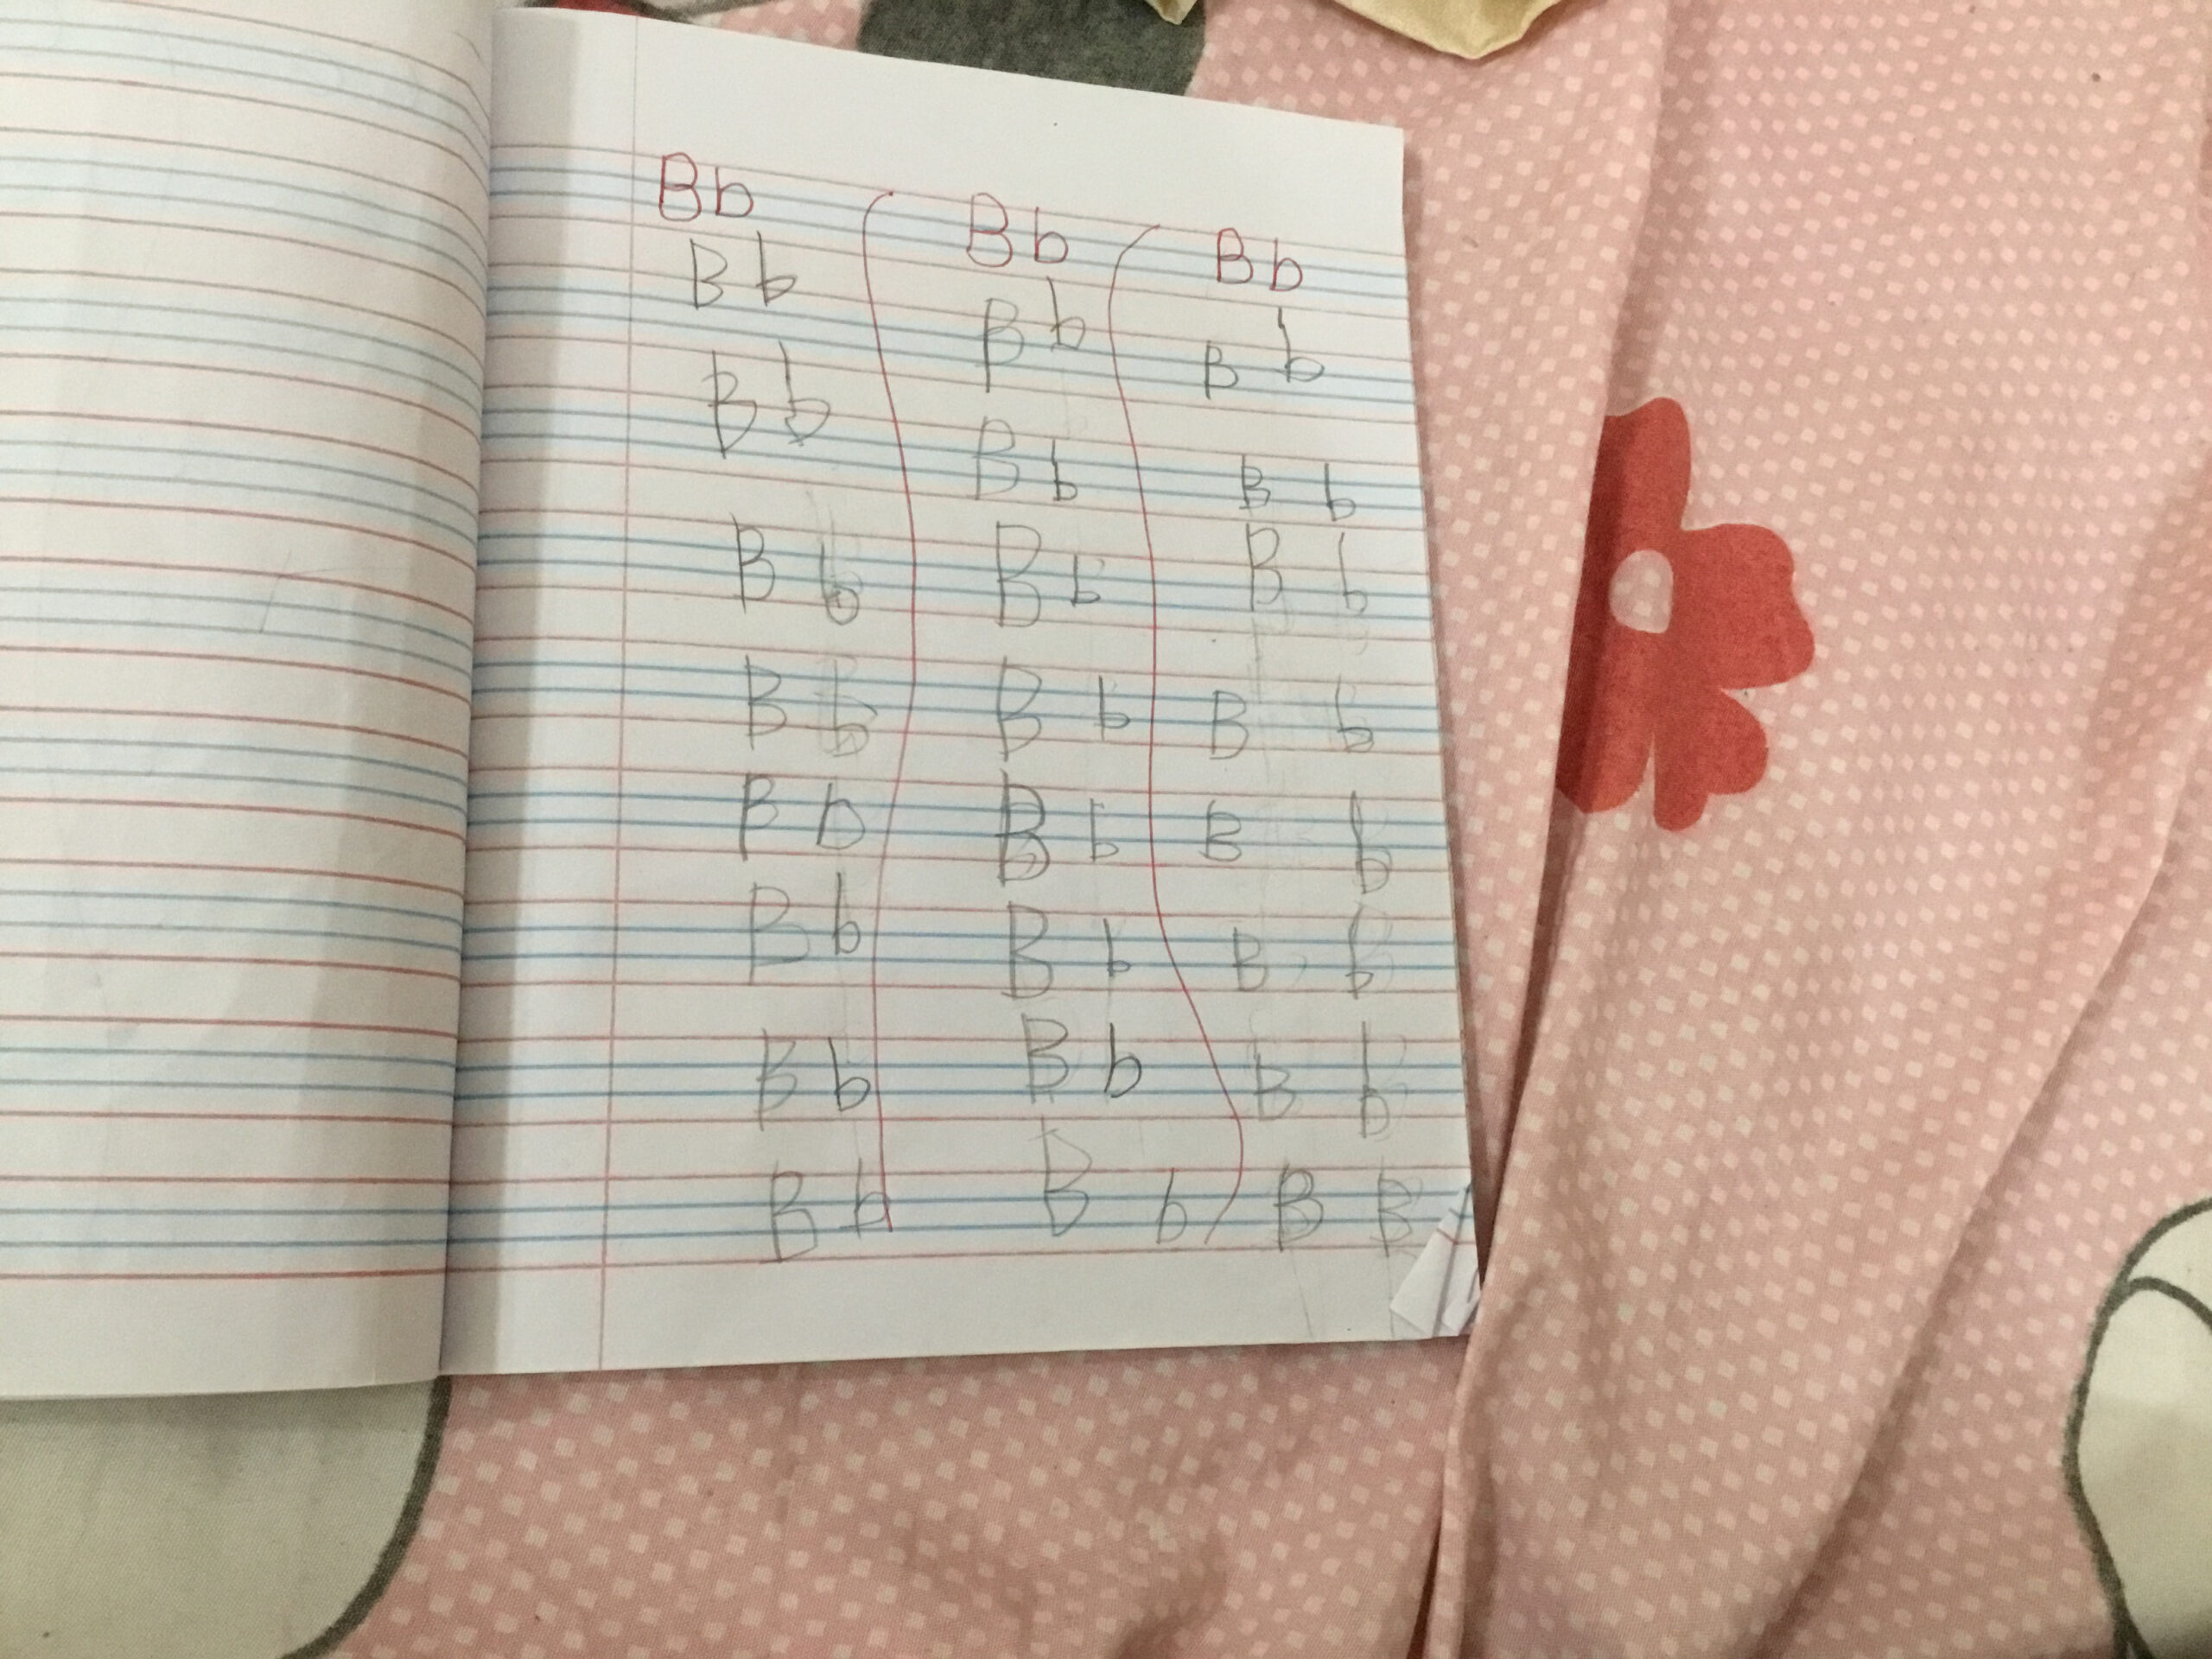 Bb Bb Bb
B b B b B b
B b B b B b
B b B b B b
B b B b B b
B b B b B b
B b B b B b
B b B b B b
B b B b B B